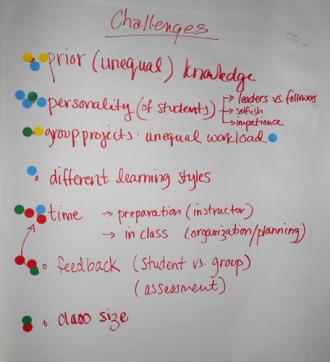 Challenges
prior (unequal) knowledge
personality (of students) → leaders vs. followers
→ selfish
→ impatience
group projects: unequal workload
different learning styles
time → preparation (instructor)
→ in class (organization/planning)
feedback (student vs. group)
(assessment)
class size